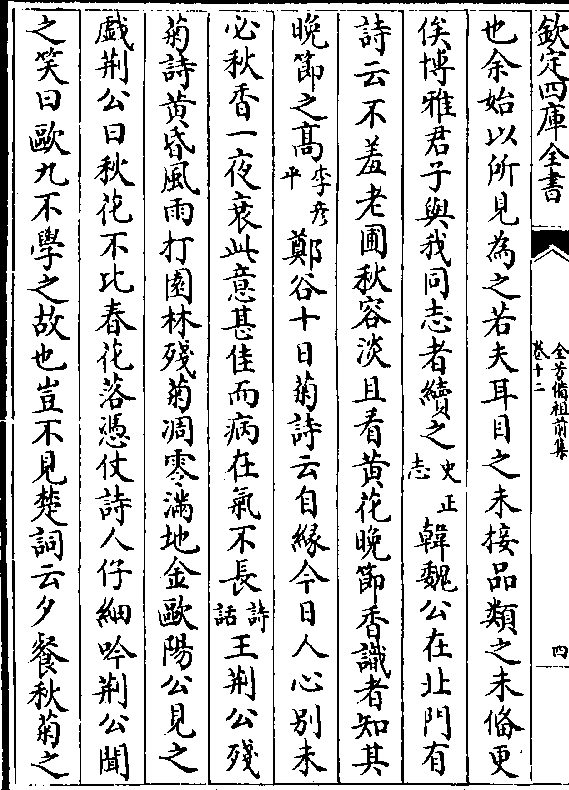 欽定四庫全書
全芳備祖前集
卷十二
四
也余始以所見為之若夫耳目之未接品類之未備更
俟博雅君子與我同志者續之史正志韓魏公在北門有
詩云不羞老圃秋容淡且看黄花晚節香識者知其
晚節之髙李彦平鄭谷十日菊詩云自緣今日人心别未
必秋香一夜衰此意甚佳而病在氣不長詩話王荆公殘
菊詩黄昏風雨打園林殘菊凋零滿地金歐陽公見之
戯荆公曰秋花不比春花落憑仗詩人仔細吟荆公聞
之笑曰歐九不學之故也豈不見楚詞云夕餐秋菊之